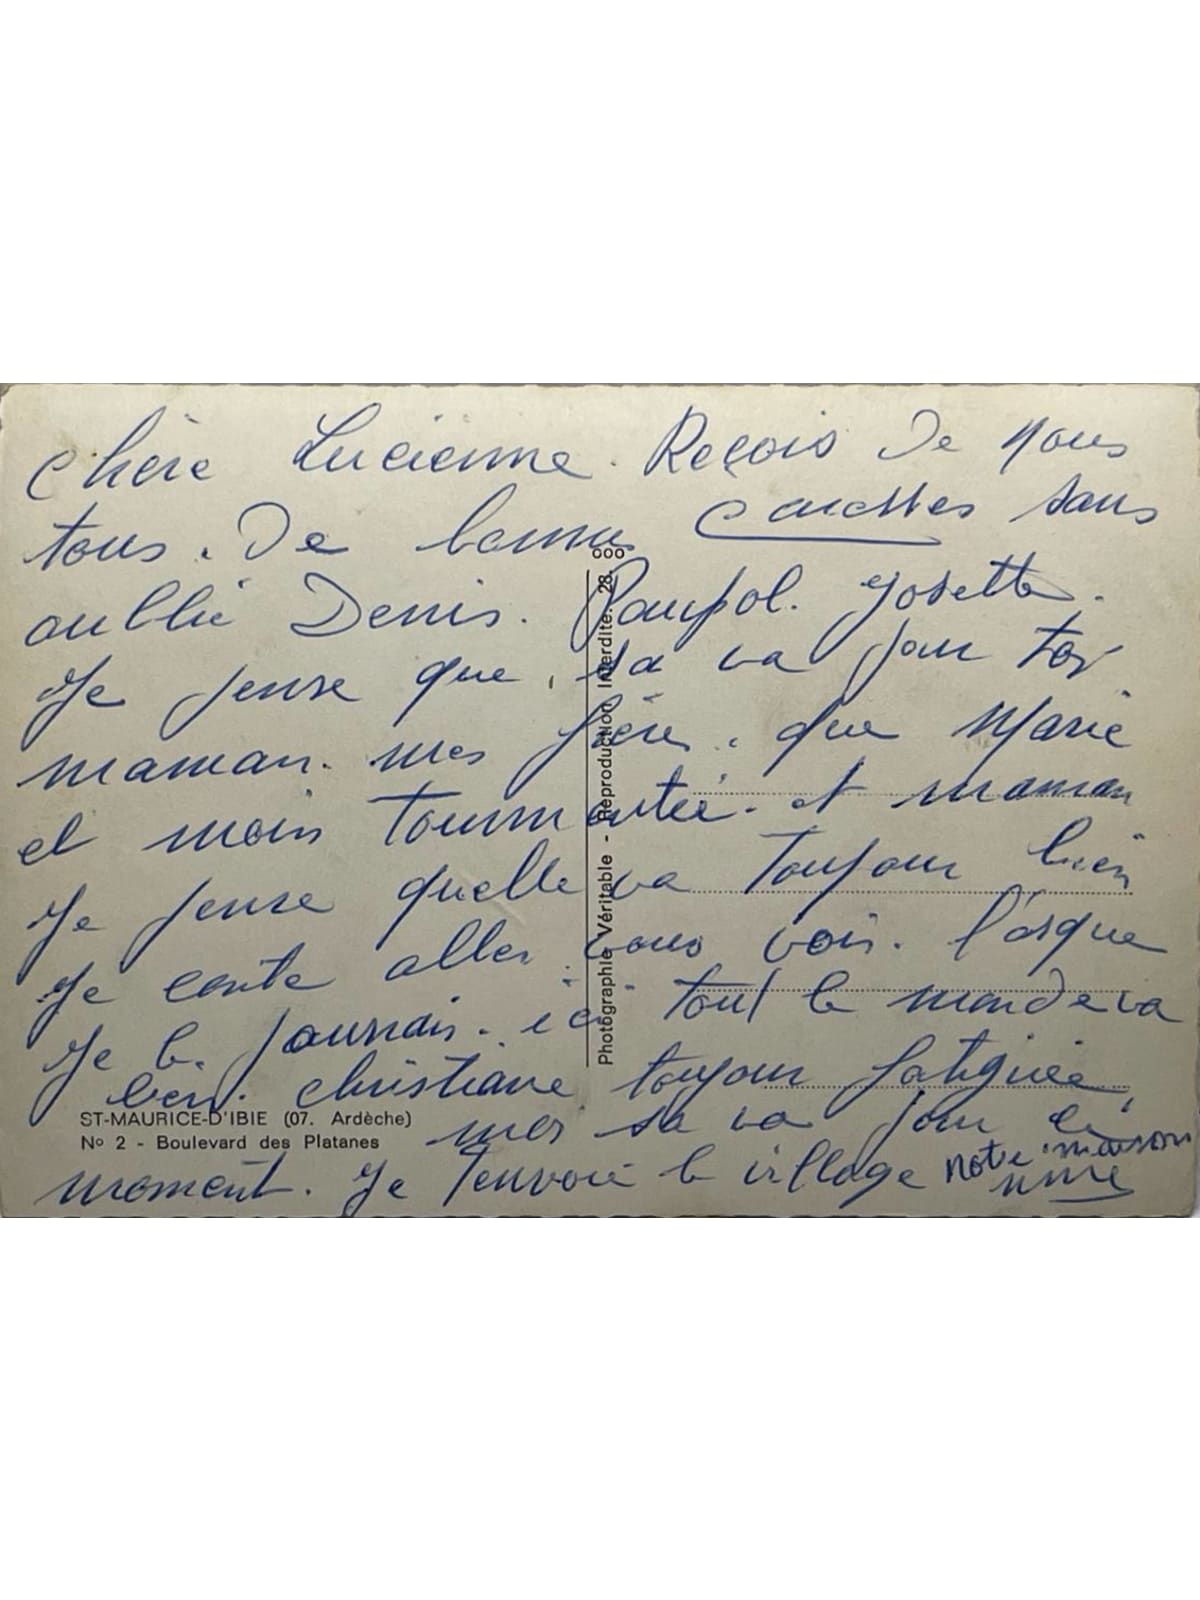 Chère Lucienne. Reçois De nous
tous. De bonnes caresses sans
oublié Denis. Paupol. Josette.
Je pense que sa va pour toi
maman. mes frères. que Marie
et moin tourmentée. et maman
Je pense quelle va toujour bien
Je conte aller vous voir. l'orsque
Je le pourrais. ici tout le monde va
bien. christiane toujour fatiguée
mes sa va pour le
moment. Je t'envoie le village notre maison
ST-MAURICE-D'IBIE (07. Ardèche)
Nº 2 - Boulevard des Platanes
Photographie Véritable - Reproduction Interdite. 28.000